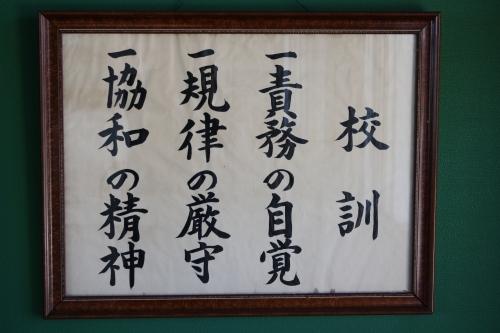 校訓
一責務の自覚
一規律の厳守
一協和の精神